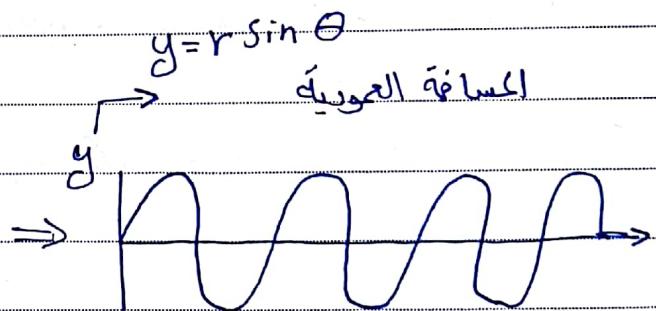 y = r sin θ
المسافة العمودية
y